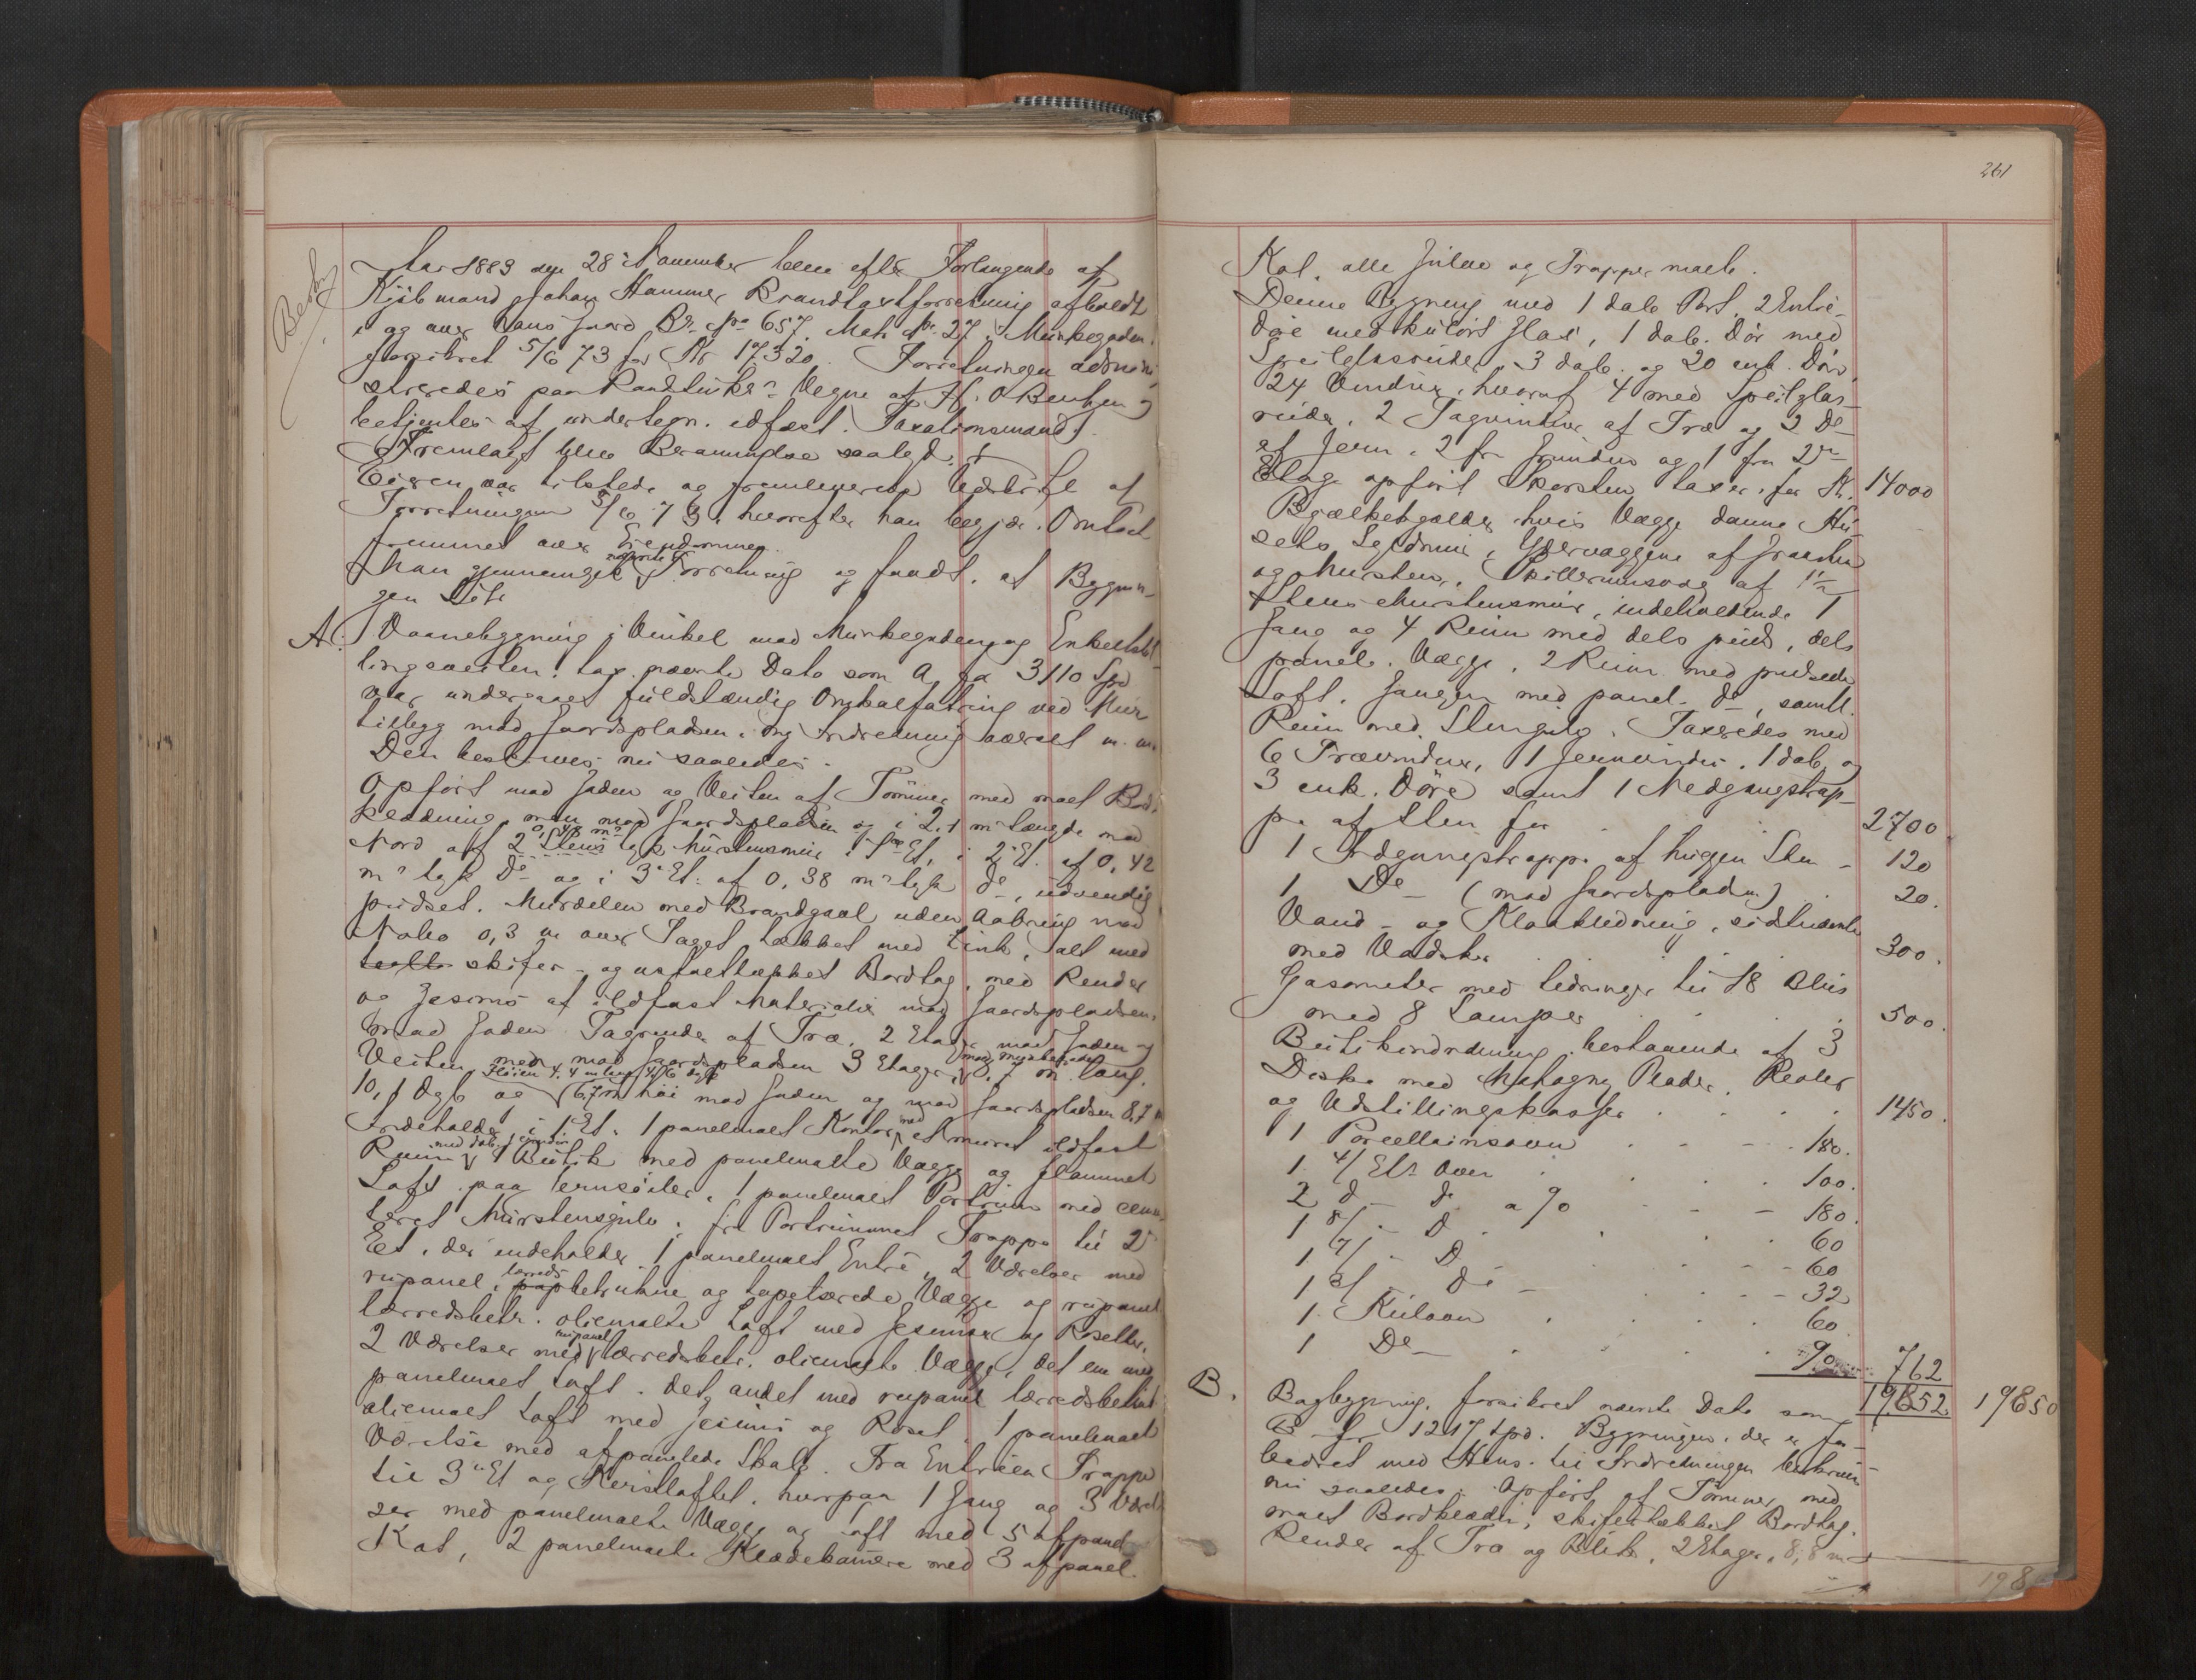 261
Besty
Aar 1883 den 28 November blev efter Forlangende af
Kjöbmand Johan Hammer Brandtaxtforretning afholdt
i og over hans Gaard Br. No 657, Matr. No. 27, Munkegaden,
forsikret 5/6 73 for Kr 17320. Forretningen admini-
streredes paa Raadstuskr. Vegne af H. O. Bentzen og
betjentes af undertegn. edfæst. Taxationsmænd.
Fremlagt blev Berammelse saalyd.
Eieren var tilstede og fremleverede Udskrift af
Forretningen 5/6 73, hvorefter han begjær. Omtaxt
fremmet over Eiendommen.
Man gjennemgik nævnte Forretning og fandt, at Bygnin-
gen Lit.
A. Vaanebygning i Vinkel mod Munkegaden og Enkeltstil-
lingsveiten, tax. nævnte Dato som A for 3110 Spd
var undergaaet fuldstændig Ombalfatring ved Mur
tillegg mod Gaardspladsen, ny Indredning m. m.
Den beskrives nu saaledes:
Opført mod Gaden og Veiten af Tömmer med malt Bord-
klædning, men mod Gaardspladsen og i 2,1 m længde mod
Nord af 2 Stens 0,48 m tyk Murstensmur i 1ste Et, i 2 Et. af 0,42
m tyk Do og i 3 Et. af 0,38 m tyk do, udvendig
pudset. Murdelen med Brandgavl uden Aabning mod
Nabo 0,3 m over Taget tækket med Zink, alt med
skifer- og asfalttækket Bordtag, med Render
og Gesims af ildfast Materiale mod Gaardspladsen,
mod Gaden Tagrender af Træ. 2 Etager mod Gaden og
Veiten, men mod Gaardspladsen 3 Etager, mod Munkegaden m lang,
10,1 dyb Fløien 4,4 m lang 4,6 dyb og 6,7 m høi mod Gaden og mod Gaardspladsen 8,7 m
Indeholder i 1 Et. 1 panelmalt Kontor med et muret ildfast
Rum med dob. Jerndör, 1 Butik med panelmalte Vægge og flammet
Loft paa Jernsøiler, 1 panelmalt Portrum med cemen-
teret Murstensgulv. Fra Portrummet Trappe til 2
Et. der indeholder 1 panelmalt Entre, 2 Værelser med
rupanel, lærreds betrukne og tapetserede Vægge og rupanel
lærredsbetr. oliemalte Loft med Gesimser og Rosetter,
2 Værelser med rupanel lærredsbetr. oliemalte Vægge, det ene med
panelmalt Loft, det andet med rupanel lærredsbetrukt
oliemalt Loft med Gesims og Roset, 1 panelmalt
Værelse med afpanelede Skabe. Fra Entreen Trappe
til 3 Et og Kvistloftet, hvorpaa 1 Gang og 3 Værel-
ser med panelmalte Vægge og Loft med 5 afpanel.
Kot, 2 panelmalte Klædekamre med 3 afpanel.
Kot, alle Gulve og Trapper malt.
Denne Bygning med 1 dob. Port, 2 Entre-
döre med kulört Glas, 1 dob. Dör med
Speilglasruder, 3 dob. og 20 enk. Döre,
24 Vinduer, hvoraf 4 med Speilglas-
ruder, 2 Tagvinduer af Træ og 2 Do
af Jern, 2 fra Grunden og 1 fra 2den
Etage opført Skorsten, taxer. for Kr. 14000
Bjælkekjælder hvis Vægge danne Hu-
sets Grundmur, Ydervæggene af Graasten
og Mursten, Skillerumsvæg af 1 1/2
Stens Murstensmur, indeholdende 1
Gang og 4 Rum med dels puds, dels
panel. Vægge, 2 Rum med pudsede
Loft, Gangen med panel. do, samtl.
Rum med Stengulv. Taxeredes med
6 Trævinduer, 1 Jernvindu, 1 dob. og
3 enk. Döre samt 1 Nedgangstrap-
pe af Sten for 2700
1 Indgangstrappe af huggen Sten - 120
1 Do - (mod Gaardspladsen) 20.
Vand- og Kloakledning, sidstnævnte
med Vadsker 300.
Gasometer med Ledninger til 18 Blus
med 8 Lamper 500.
Butikindredning bestaaende af 3
Diske med Mahogny Plader, Realer
og Udstillingskasser 1450.
1 Porcellainsovn - 180.
1 4/ Ets Ovn 100.
2 d - do a 90 - 180.
1 8/ - D 60
1 7/ - D - 60
1 3/ - Do - 32
1 Kulovn 60
1 Do - 90 762
19852 19850
B. Bagbygning, forsikret nævnte Dato som
B for 1217 Spd. Bygningen, der er for-
bedret med Hens. til Indredningen beskrives
nu saaledes: Opført af Tömmer med
malt Bordklædn., skifertækket Bordtag,
Render af Træ og Blik, 2 Etager, 8,8 m
198